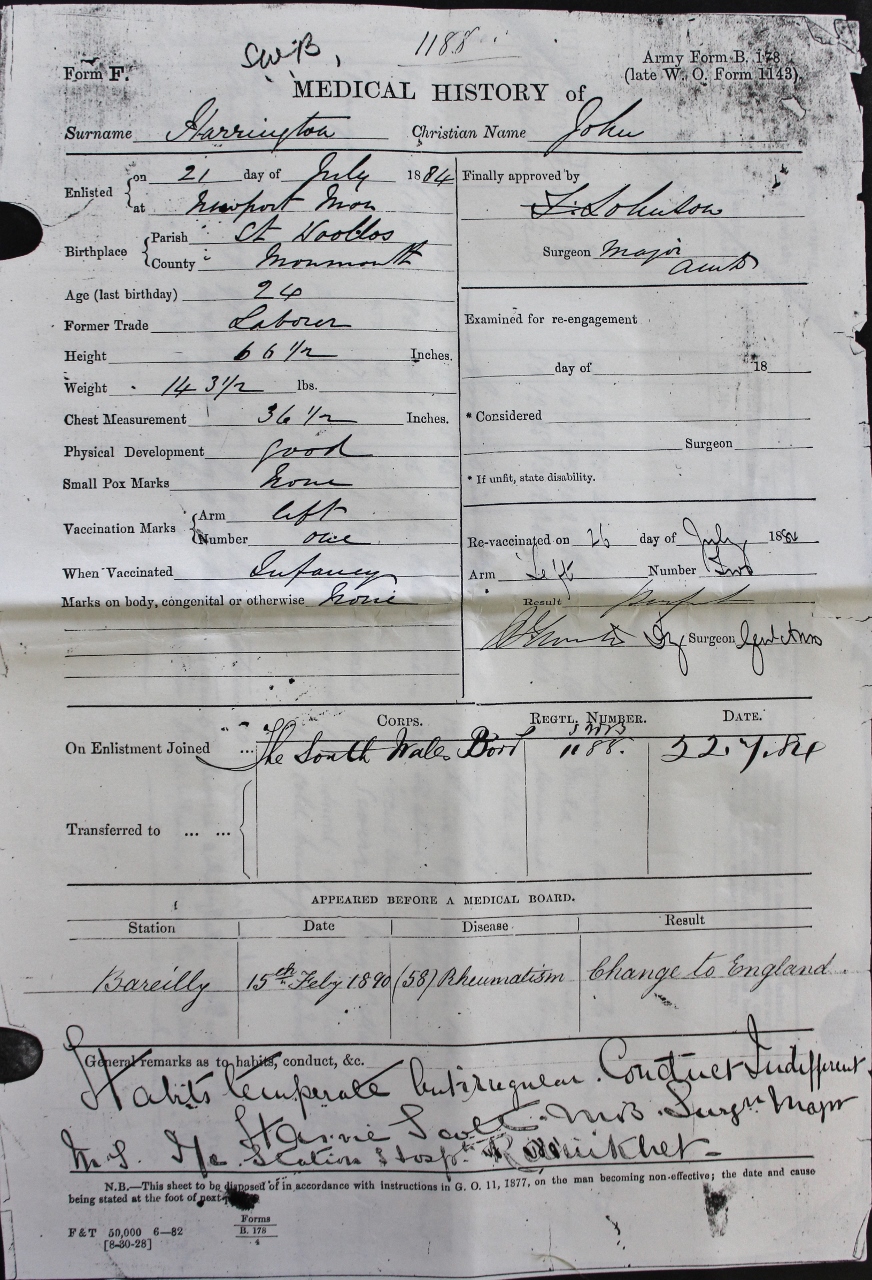 SWB, 1188
Form F.
Army Form B. 178
(late W. O. Form 1143).
MEDICAL HISTORY of
Surname Harrington Christian Name John
Enlisted on 21 day of July 1884
at Newport Mon
Birthplace Parish St Woollos
County Monmouth
Age (last birthday) 24
Former Trade Laborer
Height 66 1/2 Inches.
Weight 143 1/2 lbs.
Chest Measurement 36 1/2 Inches.
Physical Development good
Small Pox Marks None
Vaccination Marks Arm left
Number one
When Vaccinated Infancy
Marks on body, congenital or otherwise None
Finally approved by
Johnson
Surgeon Major
Examined for re-engagement
day of 18
* Considered
Surgeon
* If unfit, state disability.
Re-vaccinated on 26 day of July 1884
Arm Left Number Two
Result Perfect
Surgeon
CORPS. REGTL. NUMBER. DATE.
SWB
On Enlistment Joined ... The South Wales Bord 1188. 22.7.84
Transferred to ... ...
APPEARED BEFORE A MEDICAL BOARD.
Station Date Disease Result
Bareilly 15th Feby 1890 (58) Rheumatism Change to England
General remarks as to habits, conduct, &c.
Habits temperate but irregular. Conduct Indifferent.
Scott MB Surgn Major
Station Hospl Ranikhet
N.B.—This sheet to be disposed of in accordance with instructions in G. O. 11, 1877, on the man becoming non-effective; the date and cause
being stated at the foot of next
F & T 50,000 6—82
[8-30-28]
Forms
B. 178
4